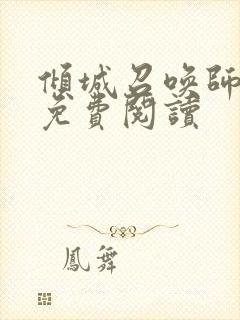 傾城召喚師
免費閱讀
鳳舞